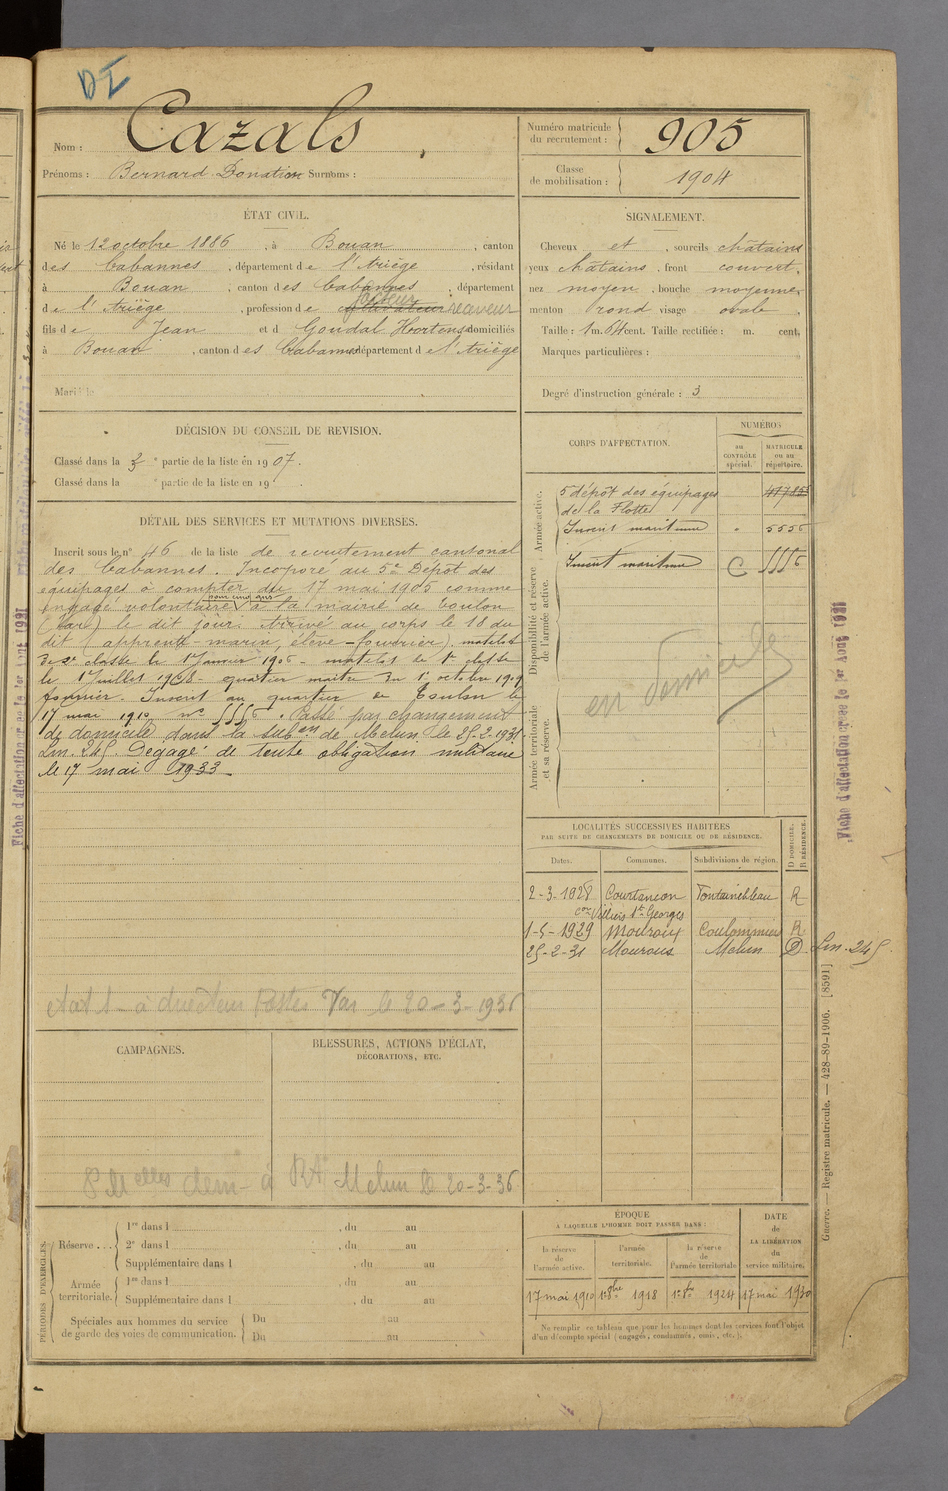 DI
Nom : Cazals
Prénoms : Bernard Donatien Surnoms :
Numéro matricule du recrutement : 905
Classe de mobilisation : 1904
ÉTAT CIVIL.
Né le 12 octobre 1886, à Bouan, canton
des Cabannes, département de l'Ariège, résidant
à Bouan, canton des Cabannes, département
de l'Ariège, profession de facteur receveur
fils de Jean et de Goudal Hortense domiciliés
à Bouan, canton des Cabannes département de l'Ariège
Marié le
SIGNALEMENT.
Cheveux et, sourcils châtains
yeux châtains, front couvert,
nez moyen, bouche moyenne,
menton rond visage ovale,
Taille : 1 m. 64 cent. Taille rectifiée : m. cent.
Marques particulières :
Degré d'instruction générale : 3
DÉCISION DU CONSEIL DE REVISION.
Classé dans la 3e partie de la liste en 1907.
Classé dans la e partie de la liste en 19 .
CORPS D'AFFECTATION.
NUMÉROS
au CONTRÔLE spécial.
MATRICULE ou au répertoire.
Armée active.
5 dépôt des équipages
de la Flotte
Inscrit maritime " 5556
Disponibilité et réserve de l'armée active.
Inscrit maritime C 5556
Armée territoriale et sa réserve.
en domicile
DÉTAIL DES SERVICES ET MUTATIONS DIVERSES.
Inscrit sous le n° 46 de la liste de recrutement cantonal
des Cabannes. Incorporé au 5e Dépot des
équipages à compter du 17 mai 1905 comme
engagé volontaire pour cinq ans à la mairie de Toulon
(Var) le dit jour. Arrivé au corps le 18 du
dit (apprenti-marin, élève-fourrier). matelot
de 2e classe le 1er Janvier 1906 - matelot de 1e classe
le 1er Juillet 1908 - quartier maitre du 1er octobre 1909
fourrier. Inscrit au quartier de Toulon le
17 mai 1910 n° 5556. Passé par changement
de domicile dans la subon de Melun le 25-2-1931
Lm. 245. Dégagé de toute obligation militaire
le 17 mai 1933
LOCALITÉS SUCCESSIVES HABITÉES
PAR SUITE DE CHANGEMENTS DE DOMICILE OU DE RÉSIDENCE.
Dates. Communes. Subdivisions de région. D DOMICILE. R RÉSIDENCE.
2-3-1928 Courtacon Fontainebleau R
con Villiers St Georges
1-5-1929 Mouroux Coulommiers R
25-2-31 Mouroux Melun D Lm. 245
etat S - à directeur Postes Var le 20-3-1936
CAMPAGNES.
BLESSURES, ACTIONS D'ÉCLAT,
DÉCORATIONS, ETC.
dem- à Melun le 20-3-36
PÉRIODES D'EXERCICES.
Réserve ... 1re dans l , du au
2e dans l , du au
Supplémentaire dans l , du au
Armée territoriale. 1re dans l , du au
Supplémentaire dans l , du au
Spéciales aux hommes du service
de garde des voies de communication. Du au
Du au
ÉPOQUE
À LAQUELLE L'HOMME DOIT PASSER DANS :
la réserve de l'armée active.
l'armée territoriale.
la réserve de l'armée territoriale
DATE de LA LIBÉRATION du service militaire.
17 mai 1910 1er 8bre 1918 1er 8bre 1924 17 mai 1930
No remplir ce tableau que pour les hommes dont les services font l'objet
d'un décompte spécial (engagés, condamnés, omis, etc.).
Guerre. — Registre matricule. — 428-89-1906. [8591]
Fiche d'affectation créée le 1er Août 1921
Fiche d'affectation créée le 1er Août 1921